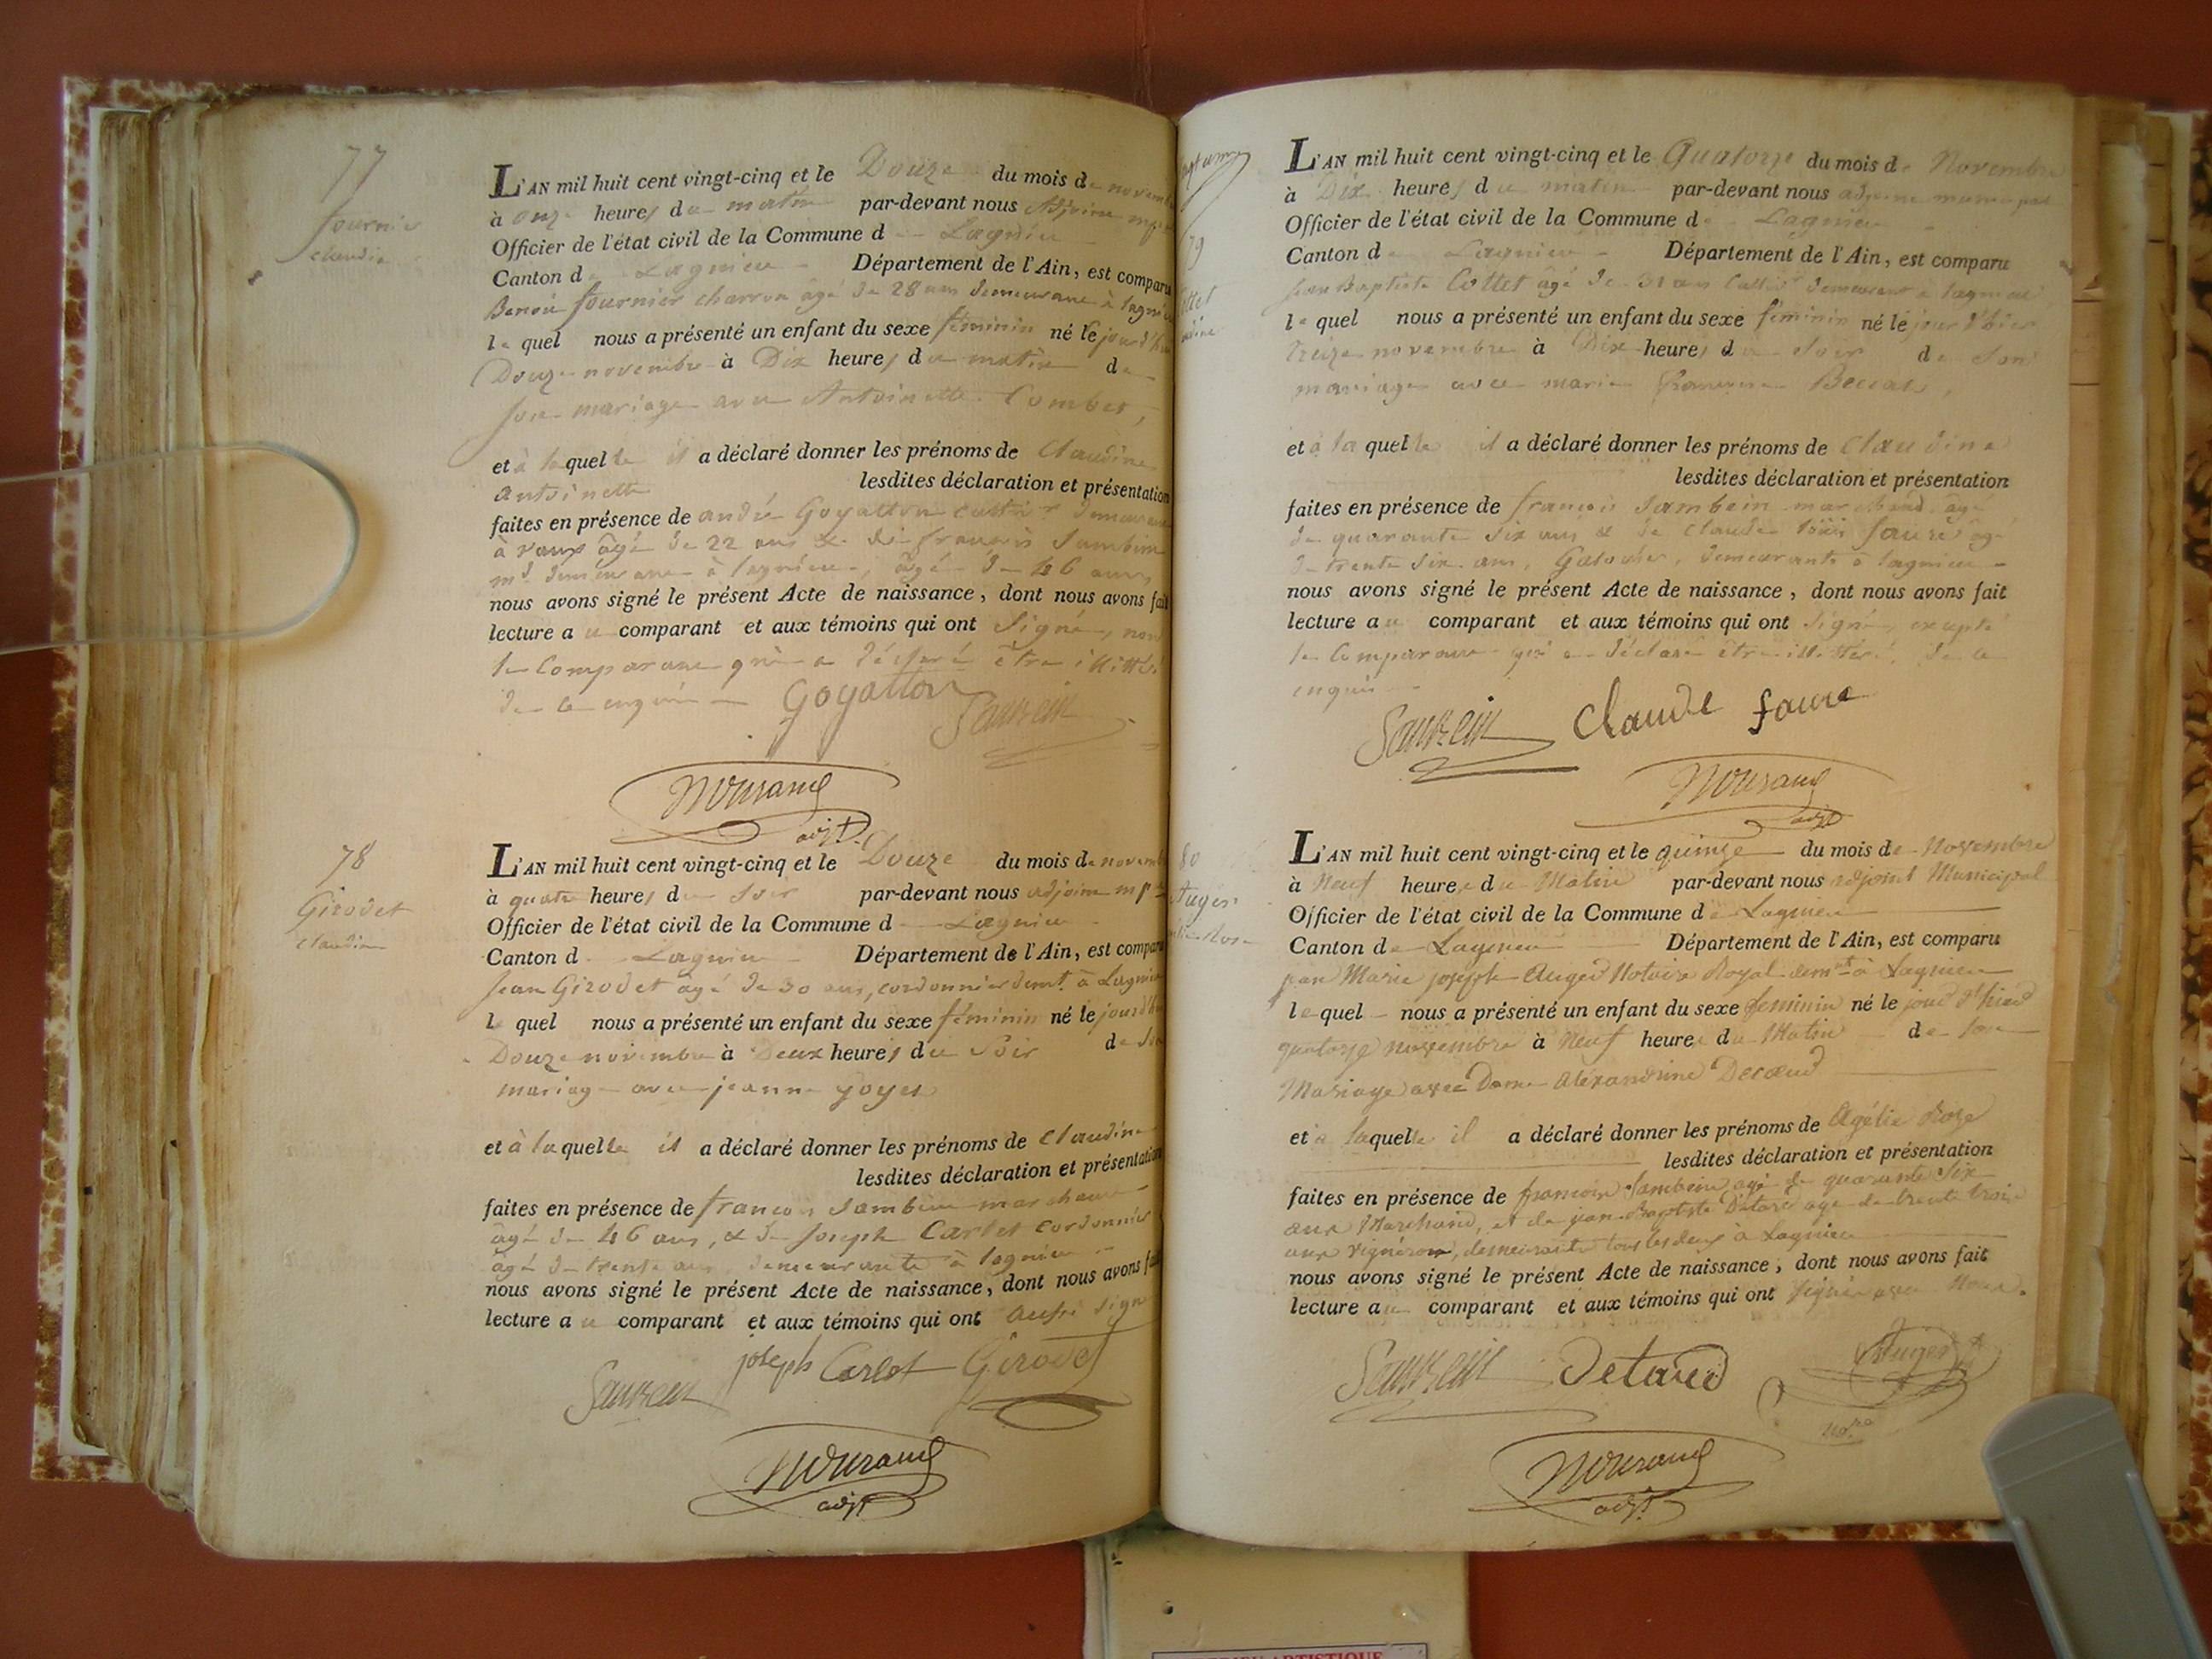 77
fournier
claudine
L'AN mil huit cent vingt-cinq et le Douze du mois de novemb
à onze heures du matin par-devant nous Adjoint mp
Officier de l'état civil de la Commune d Lagnieu
Canton de Lagnieu Département de l'Ain, est comparu
Benoit fournier charron âgé de 28 ans demeurant à lagnieu
le quel nous a présenté un enfant du sexe féminin né le jour d'hui
Douze novembre à Dix heures du matin de
son mariage avec Antoinette Combet,
et à laquelle il a déclaré donner les prénoms de Claudine
antoinette lesdites déclaration et présentation
faites en présence de andré Goyatton cultivr demeurant
à vaux âgé de 22 ans & de françois Sambein
md demeurant à lagnieu, âgé de 46 ans,
nous avons signé le présent Acte de naissance, dont nous avons fait
lecture au comparant et aux témoins qui ont Signé, non
le Comparant qui a déclaré être illittéré
de ce enquis Goyatton
adjt
78
Girodet
claudine
L'AN mil huit cent vingt-cinq et le Douze du mois de novemb
à quatre heures du Soir par-devant nous adjoint mpal
Officier de l'état civil de la Commune d Lagnieu
Canton d Lagnieu Département de l'Ain, est comparu
Jean Girodet âgé de 30 ans, cordonnier demt. à Lagnieu
le quel nous a présenté un enfant du sexe féminin né le jour d'hui
Douze novembre à Deux heures du Soir de Son
mariage avec jeanne goyet
et à laquelle il a déclaré donner les prénoms de Claudine
lesdites déclaration et présentation
faites en présence de françois Sambein marchand
âgé de 46 ans, & de Joseph Carlet cordonnier
âgé de trente ans demeurants à lagnieu
nous avons signé le présent Acte de naissance, dont nous avons fait
lecture au comparant et aux témoins qui ont aussi signé
joseph Carlet Girodet
adjt
79
L'AN mil huit cent vingt-cinq et le Quatorze du mois de Novembre
à Dix heures du matin par-devant nous adjoint municipal
Officier de l'état civil de la Commune de Lagnieu
Canton de Lagnieu Département de l'Ain, est comparu
Jean Baptiste Cottet âgé de 31 ans Cultivr demeurant à lagnieu
le quel nous a présenté un enfant du sexe féminin né le jour d'hier
treize novembre à Dix heures du Soir de Son
mariage avec marie
et à laquelle il a déclaré donner les prénoms de Claudine
lesdites déclaration et présentation
faites en présence de françois Sambein marchand âgé
de quarante six ans & de Claude faure âgé
de trente six ans, demeurants à lagnieu
nous avons signé le présent Acte de naissance, dont nous avons fait
lecture au comparant et aux témoins qui ont Signé, excepté
le Comparant qui a déclaré être illittéré, de ce
enquis
Claude faure
adjt
80
Auger
L'AN mil huit cent vingt-cinq et le quinze du mois de Novembre
à Neuf heures du Matin par-devant nous adjoint Municipal
Officier de l'état civil de la Commune de Lagnieu
Canton de Lagnieu Département de l'Ain, est comparu
jean Marie joseph Auger Notaire Royal demnt à Lagnieu
lequel nous a présenté un enfant du sexe feminin né le jour d'hier
quatorze novembre à Neuf heures du Matin de son
Mariage avec Dame Aléxandrine Decœur
et à laquelle il a déclaré donner les prénoms de Agélie Roze
lesdites déclaration et présentation
faites en présence de francois Sambein agé de quarante Six
ans Marchand, et de jean Baptiste Détard agé de trente trois
ans vigneron, demeurants tous les deux à Lagnieu
nous avons signé le présent Acte de naissance, dont nous avons fait
lecture au comparant et aux témoins qui ont signé avec Nous.
Detard Auger
adjt